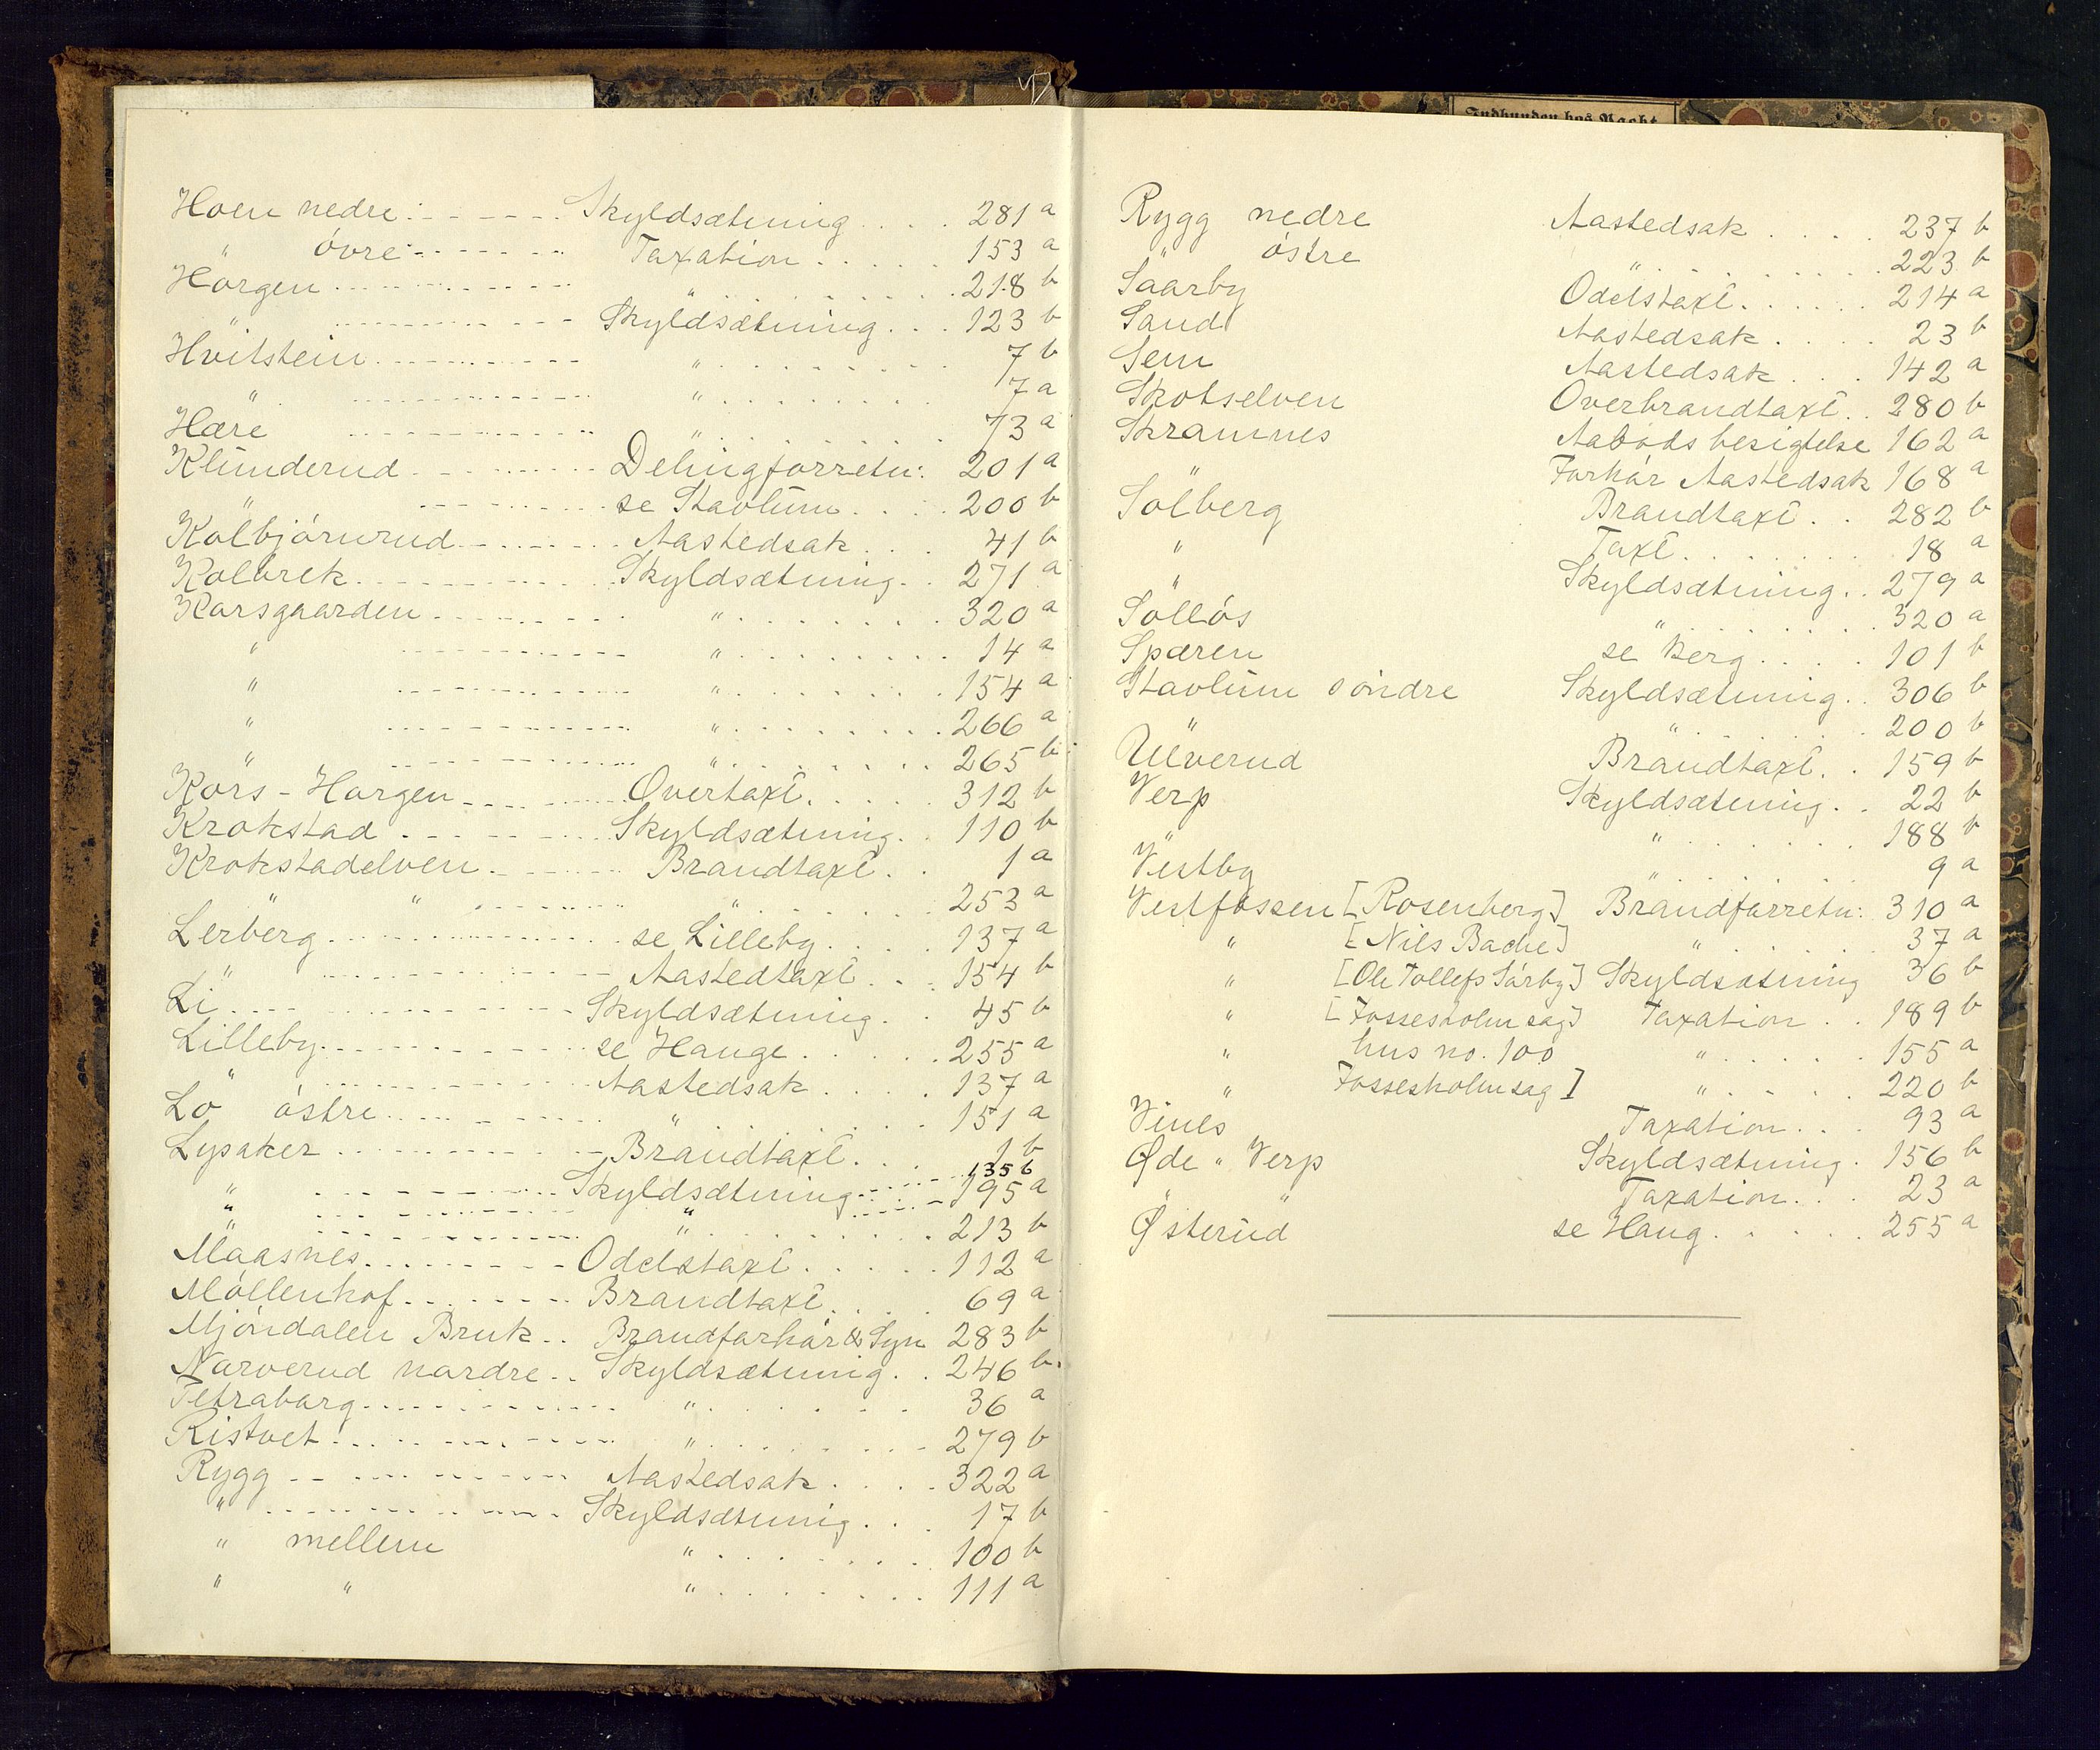 Indbunden hos Bacht
Hoen nedre: - - - - - Skyldsætning . . . . 281 a
" övre - - - - - - Taxation . . . . . 153 a
Horgen - - - - - - " . . . . . . . 218 b
" - - - - - - Skyldsætning . . . 123 b
Hvitstein - - - - - - " . . . . . . . 7 b
" - - - - - - " . . . . . . . 7 a
Hære - - - - - - " . . . . . . . 73 a
Klunderud - - - - - - Delingforretn: 201 a
" - - - - - - se Stavlum . . . . 200 b
Kolbjörnrud - - - - - - Aastedsak . . . 41 b
Kolbrek - - - - - - Skyldsætning . . 271 a
Korsgaarden - - - - - - " . . . . . . . 320 a
" - - - - - - " . . . . . . . 14 a
" - - - - - - " . . . . . . . 154 a
" - - - - - - " . . . . . . . 266 a
" - - - - - - " . . . . . . . 265 b
Kors - Horgen - - - - - - Overtaxt . . . . . 312 b
Krokstad - - - - - - Skyldsætning . . 110 b
Krokstadelven - - - - - - Brandtaxt . . 1 a
" " - - - - - - " . . . . . . . 253 a
Lerberg - - - - - - se Lilleby . . . . 137 a
" - - - - - - Aastedtaxt . . . 154 b
Li - - - - - - Skyldsætning . . 45 b
Lilleby - - - - - - se Hauge . . . . . 255 a
" - - - - - - Aastedsak . . . . 137 a
Lo östre - - - - - - " . . . . . . . 151 a
Lysaker - - - - - - Brandtaxt . . . 1 b
135 b
" - - - - - - Skyldsætning - - - 195 a
" - - - - - - " . . . . . . . 213 b
Maasnes - - - - - - Odelstaxt . . . . . 112 a
Möllenhof - - - - - - Brandtaxt . . . . 69 a
Mjöndalen Bruk . . Brandforhör & Syn 283 b
Narverud nordre . . Skyldsætning . . 246 b
Tetraborg - - - - - - " . . . . . . . 36 a
Ristvet - - - - - - " . . . . . . . 279 b
Rygg - - - - - - Aastedsak . . . . 322 a
" - - - - - - Skyldsætning . . . 17 b
" mellem " . . . . . . . 100 b
" " " . . . . . . . 111 a
Rygg nedre Aastedsak . . . . 237 b
" östre " . . . . . . . 223 b
Saarby Odelstaxt . . . . . 214 a
Sand Aastedsak . . . . 23 b
Sem Aastedsak . . . 142 a
Skotselven Overbrandtaxt . . 280 b
Skramnes Aabodsbesigtelse 162 a
" Forhör Aastedsak 168 a
Solberg Brandtaxt . . 282 b
" Taxt . . . . . . 18 a
" Skyldsætning . . 279 a
Sollös " . . . . . . . 320 a
Spæren se Berg . . . . 101 b
Stavlum söndre Skyldsætning . . 306 b
" " . . . . . . . 200 b
Ulverud Brandtaxt . . 159 b
Verp Skyldsætning . . 22 b
" " . . . . . . . 188 b
Vestby " . . . . . . . 9 a
Vestfossen [Rosenberg] Brandforretn: 310 a
" [Nils Bache] " . . . . . 37 a
" [Ole Tollefs Sörby] Skyldsætning 36 b
" [Fossesholm sag] Taxation . . 189 b
" hus no. 100 " . . . . . 155 a
" Fossesholmsag] " . . . . . 220 b
Vinls Taxation . . . 93 a
Øde " Verp Skyldsætning . 156 b
" " Taxation . . . 23 a
Østerud se Haug . . . . . 255 a